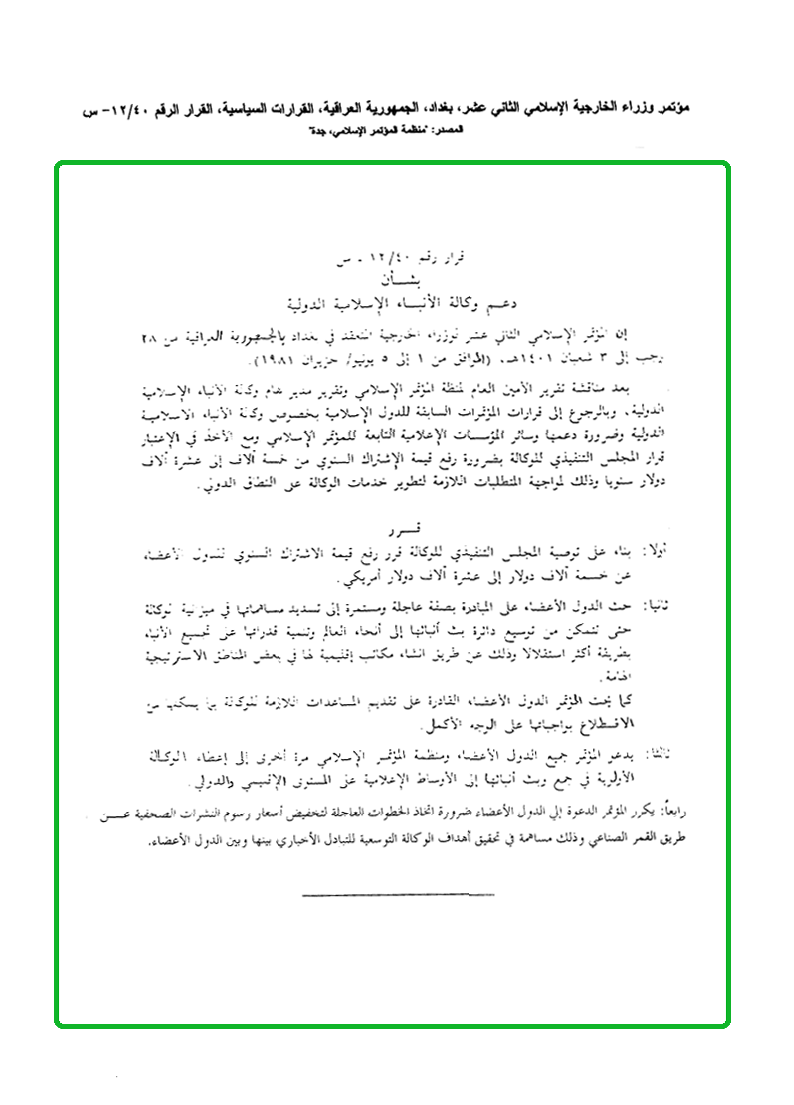 مؤتمر وزراء الخارجية الإسلامي الثاني عشر، بغداد، الجمهورية العراقية، القرارات السياسية، القرار الرقم ١٢/٤٠- س
المصدر: "منظمة المؤتمر الإسلامي، جدة"
قرار رقم ١٢/٤٠ - س
بشـــأن
دعـم وكالة الأنبـاء الإسلامية الدولية
إن المؤتمر الإسلامي الثاني عشر لوزراء الخارجية المنعقد في بغداد بالجمهورية العراقية من ٢٨
رجب إلى ٣ شعبان ١٤٠١هـ، (الموافق من ١ إلى ٥ يونيو/ حزيران ١٩٨١).
بعد مناقشة تقرير الأمين العام لمنظمة المؤتمر الإسلامي وتقرير مدير عام وكالة الأنباء الإسلامية
الدولية، وبالرجوع إلى قرارات المؤتمرات السابقة للدول الإسلامية بخصوص وكالة الأنباء الاسلاميـة
الدولية وضرورة دعمها وسائر المؤسسات الإعلامية التابعة للمؤتمر الإسلامي ومع الأخذ في الإعتبار
قرار المجلس التنفيذي للوكالة بضرورة رفع قيمة الإشتراك السنوي من خمسة آلاف إلى عشرة آلاف
دولار سنويا وذلك لمواجهة المتطلبات اللازمة لتطوير خدمات الوكالة على النطاق الدولي.
قـــرر
أولا: بناء على توصية المجلس التنفيذي للوكالة قرر رفع قيمة الاشتراك السنوي للدول الأعضاء
عن خمسـة آلاف دولار إلى عشرة آلاف دولار أمريكي.
ثانيا: حث الدول الأعضاء على المبادرة بصفة عاجلة ومستمرة إلى تسديد مساهماتها في ميزانية الوكالة
حتى تتمكن من توسيع دائرة بث أنبائها إلى أنحاء العالم وتنمية قدراتها على تجميع الأنباء
بطريقة أكثر استقلالا وذلك عن طريق انشاء مكاتب إقليمية لها في بعض المناطق الاسترتيجية
الهامة.
كما يحث المؤتمر الدول الأعضاء القادرة على تقديم المساعدات اللازمة للوكالة بما يمكنها من
الاضطلاع بواجباتها على الوجه الأكمل.
ثالثا: يدعو المؤتمر جميع الدول الأعضاء ومنظمة المؤتمر الإسلامي مرة أخرى إلى إعطاء الوكالة
الأولوية في جمع وبث أنبائها إلى الأوساط الإعلامية على المستوى الإقليمي والدولي.
رابعاً: يكرر المؤتمر الدعوة إلى الدول الأعضاء ضرورة اتخاذ الخطوات العاجلة لتخفيض أسعار رسوم النشرات الصحفية عـــن
طريق القمر الصناعي وذلك مساهمة في تحقيق أهداف الوكالة التوسعية للتبادل الأخباري بينها وبين الدول الأعضاء.